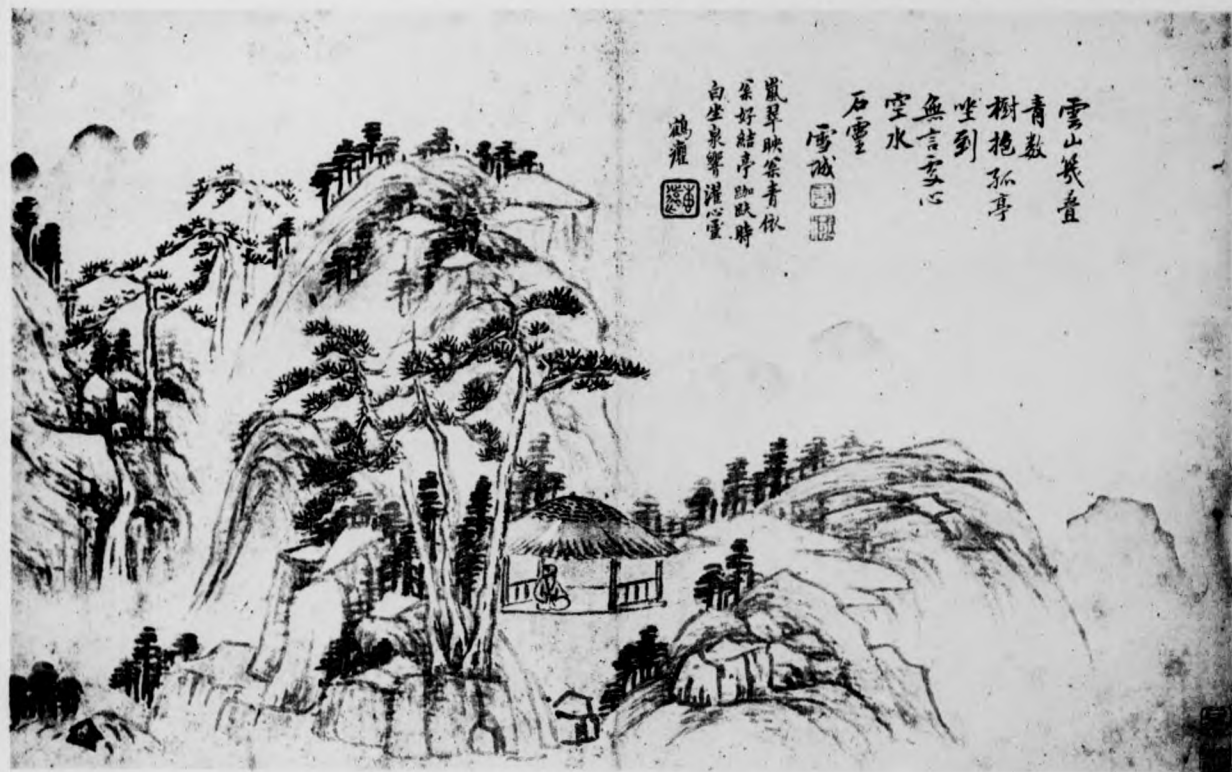 雲山幾叠
青數
樹抱孤亭
坐到
無言處心
空水
石靈
雪城
嵐翠映簾青依
好結亭跏趺時
向坐泉響濯心靈
鶴癯